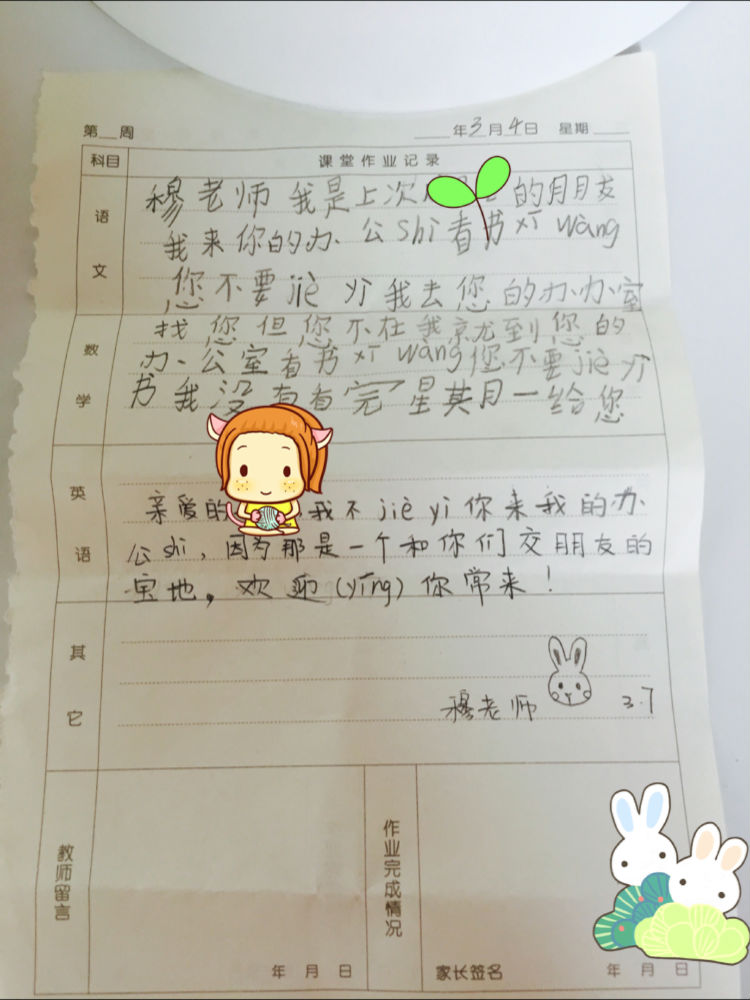 第 周 年3月4日 星期
科目 课堂作业记录
语文
穆老师 我是上次 的月月友
我来你的办公Shi看书 xī wàng
您不要jiè yì 我去您的办办室
数学
找您但您不在我京尤到您的
办公室看书 xī wàng 您不要jiè yì
书我没有看完了星其月一给您
英语
亲爱的 我不jiè yì你来我的办
公shi,因为那是一个和你们交朋友的
宝地,欢迎(yíng)你常来!
其它
穆老师 3.7
教师留言
年 月 日
作业完成情况
家长签名 年 月 日